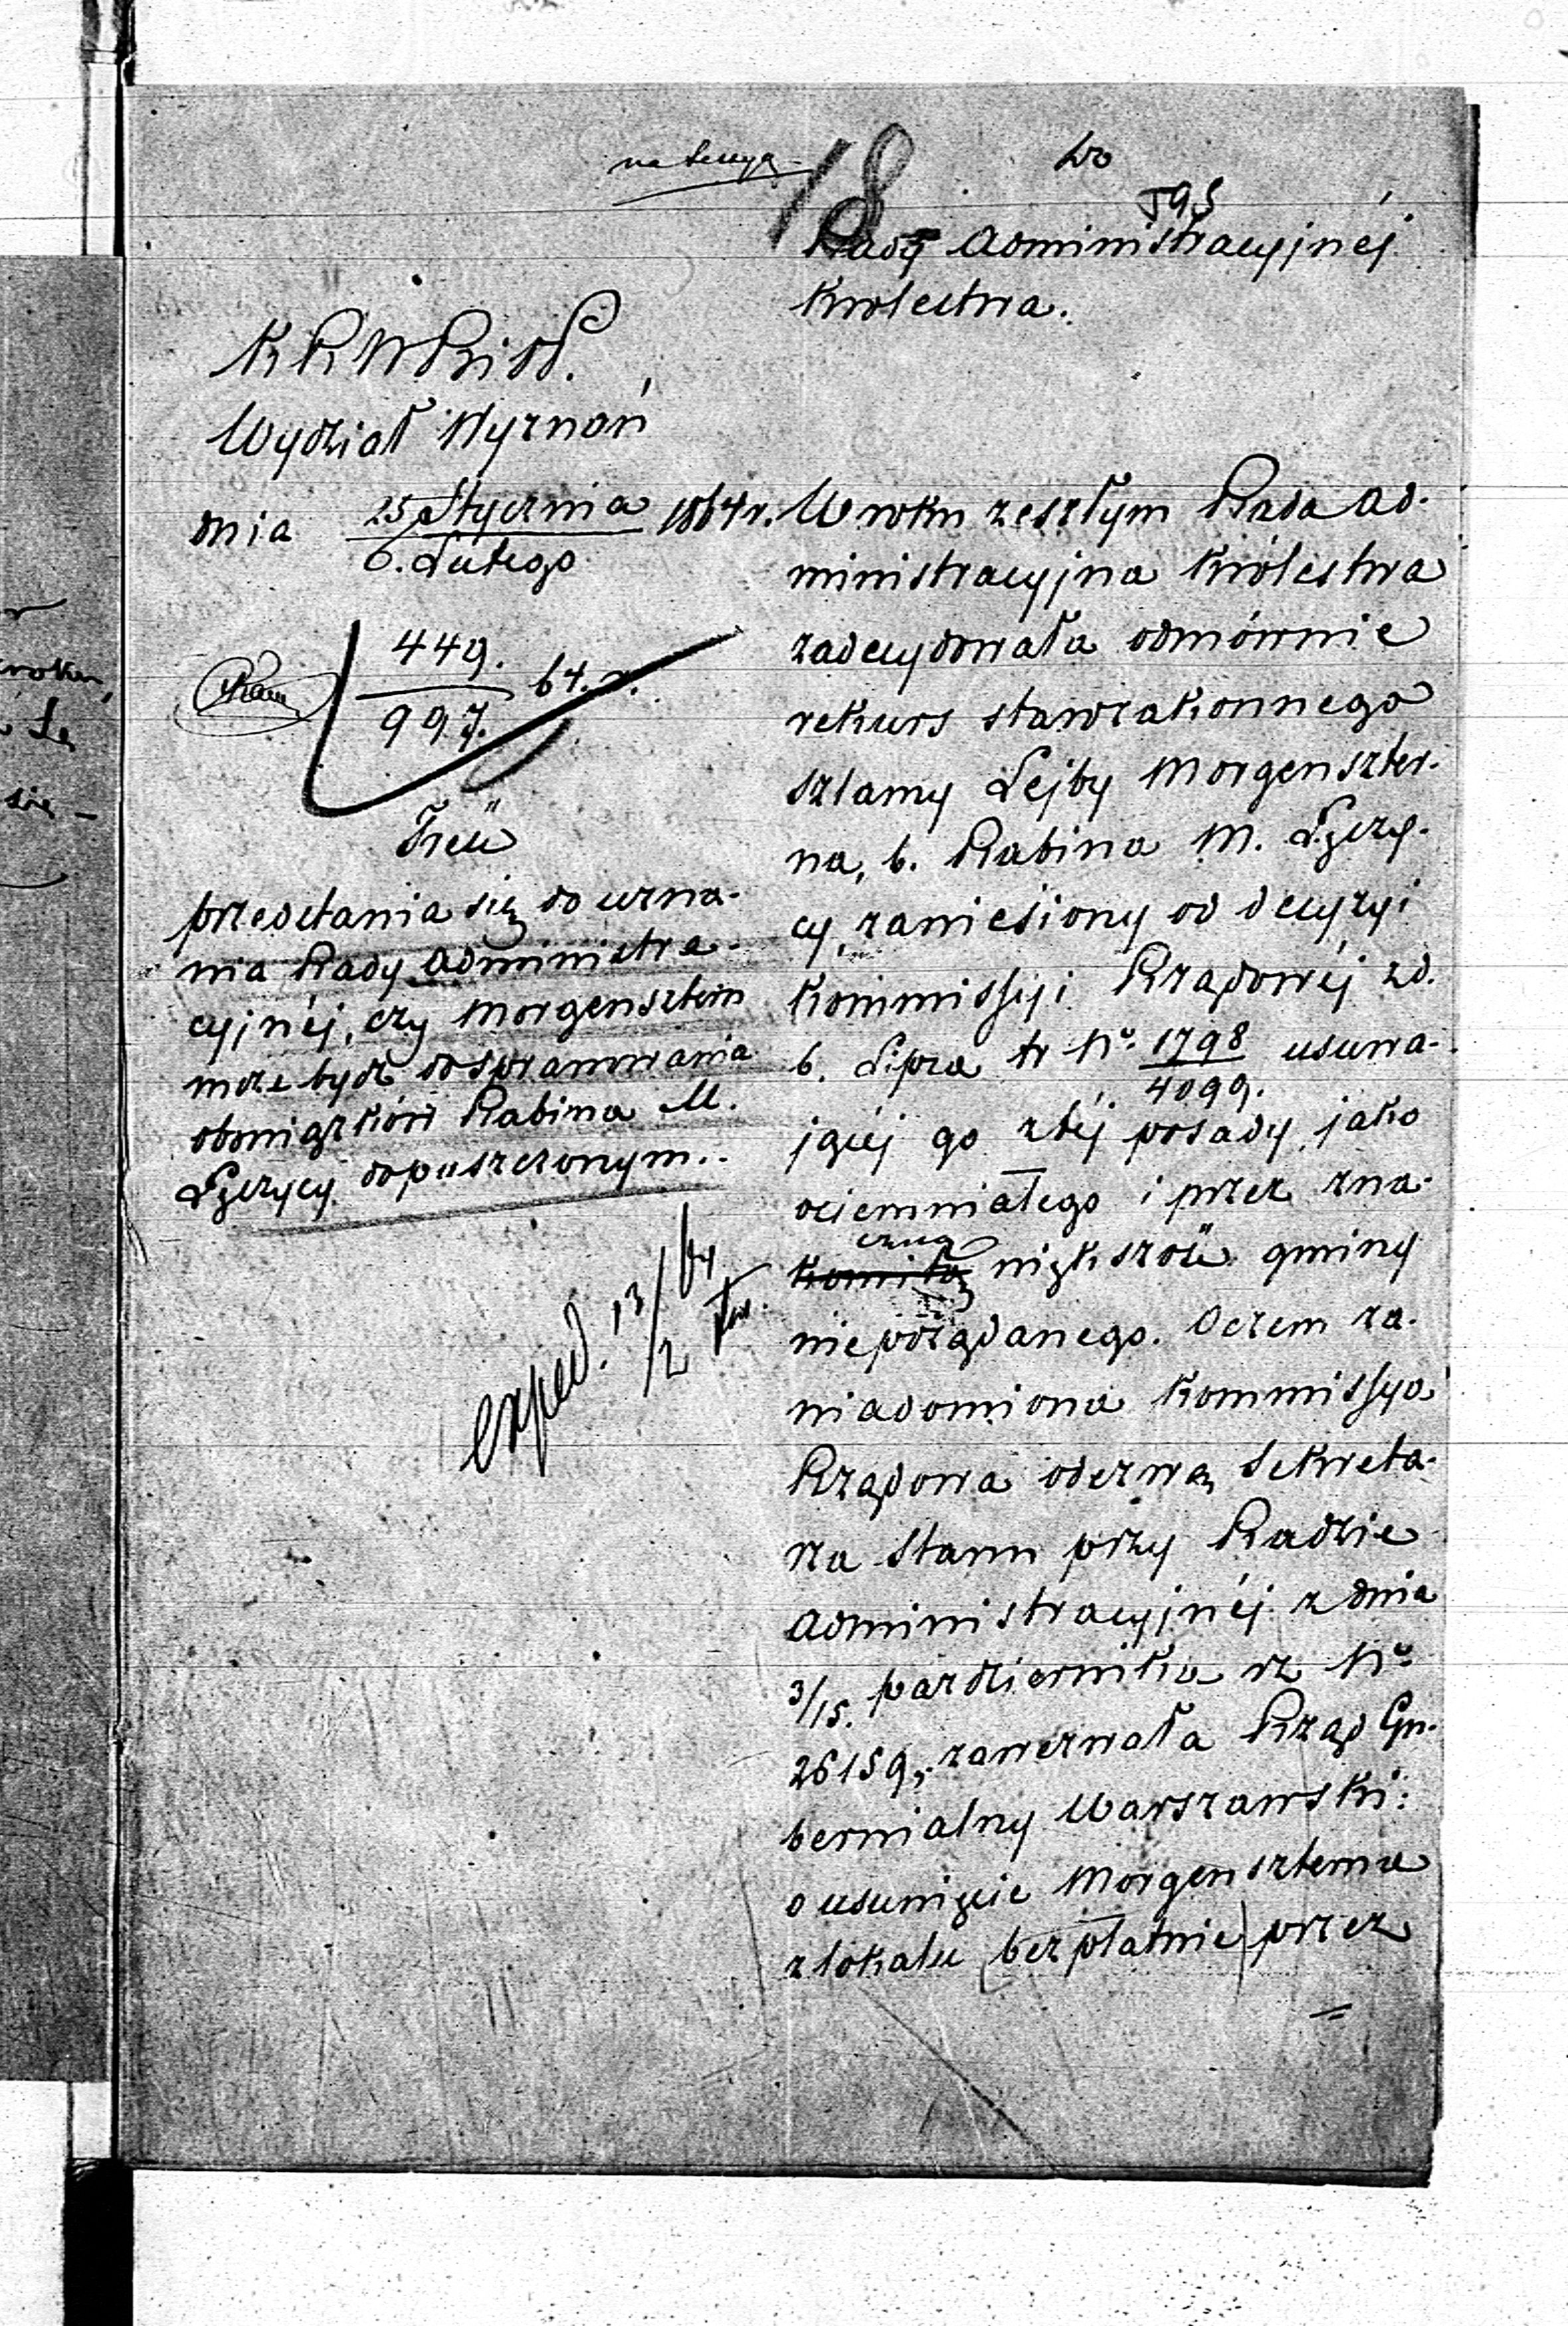 Do
18
195
Rady Administracyjnéj
Królestwa.
KRWRiOP.
Wydział Wyznań
dnia 25 Stycznia / 6. Lutego 1864 r.
449. / 997. 64. r.
Treść
przedstania się do uzna-
nia Rady Administra-
cyjnéj, czy Morgensztern
może bydź do sprawowania
obowiązków Rabina M.
Łęczycy dopuszczonym.
exped. 13/2 64
W roku zeszłym Rada Ad-
ministracyjna Królestwa
zadecydowała odmównie
rekurs starozakonnego
Szlamy Lejby Morgenszter-
na, b. Rabina M. Łęczy-
cy, zaniesiony od decyzyi
Kommissyi Rządowéj z d.
6. Lipca tr No. 1798 / 4099. usuwa-
jącéj go z téj posady, jako
ociemniałego i przez zna-
czną
komitą większość gminy
niepożądanego. O czem za-
wiadomiona Kommissya
Rządowa odezwą Sekreta-
rza Stanu przy Radzie
Administracyjnéj z dnia
3/15. października rz No.
26159, zawezwała Rząd Gu-
bernialny Warszawski:
o usunięcie Morgenszterna
z lokalu bezpłatnie przez